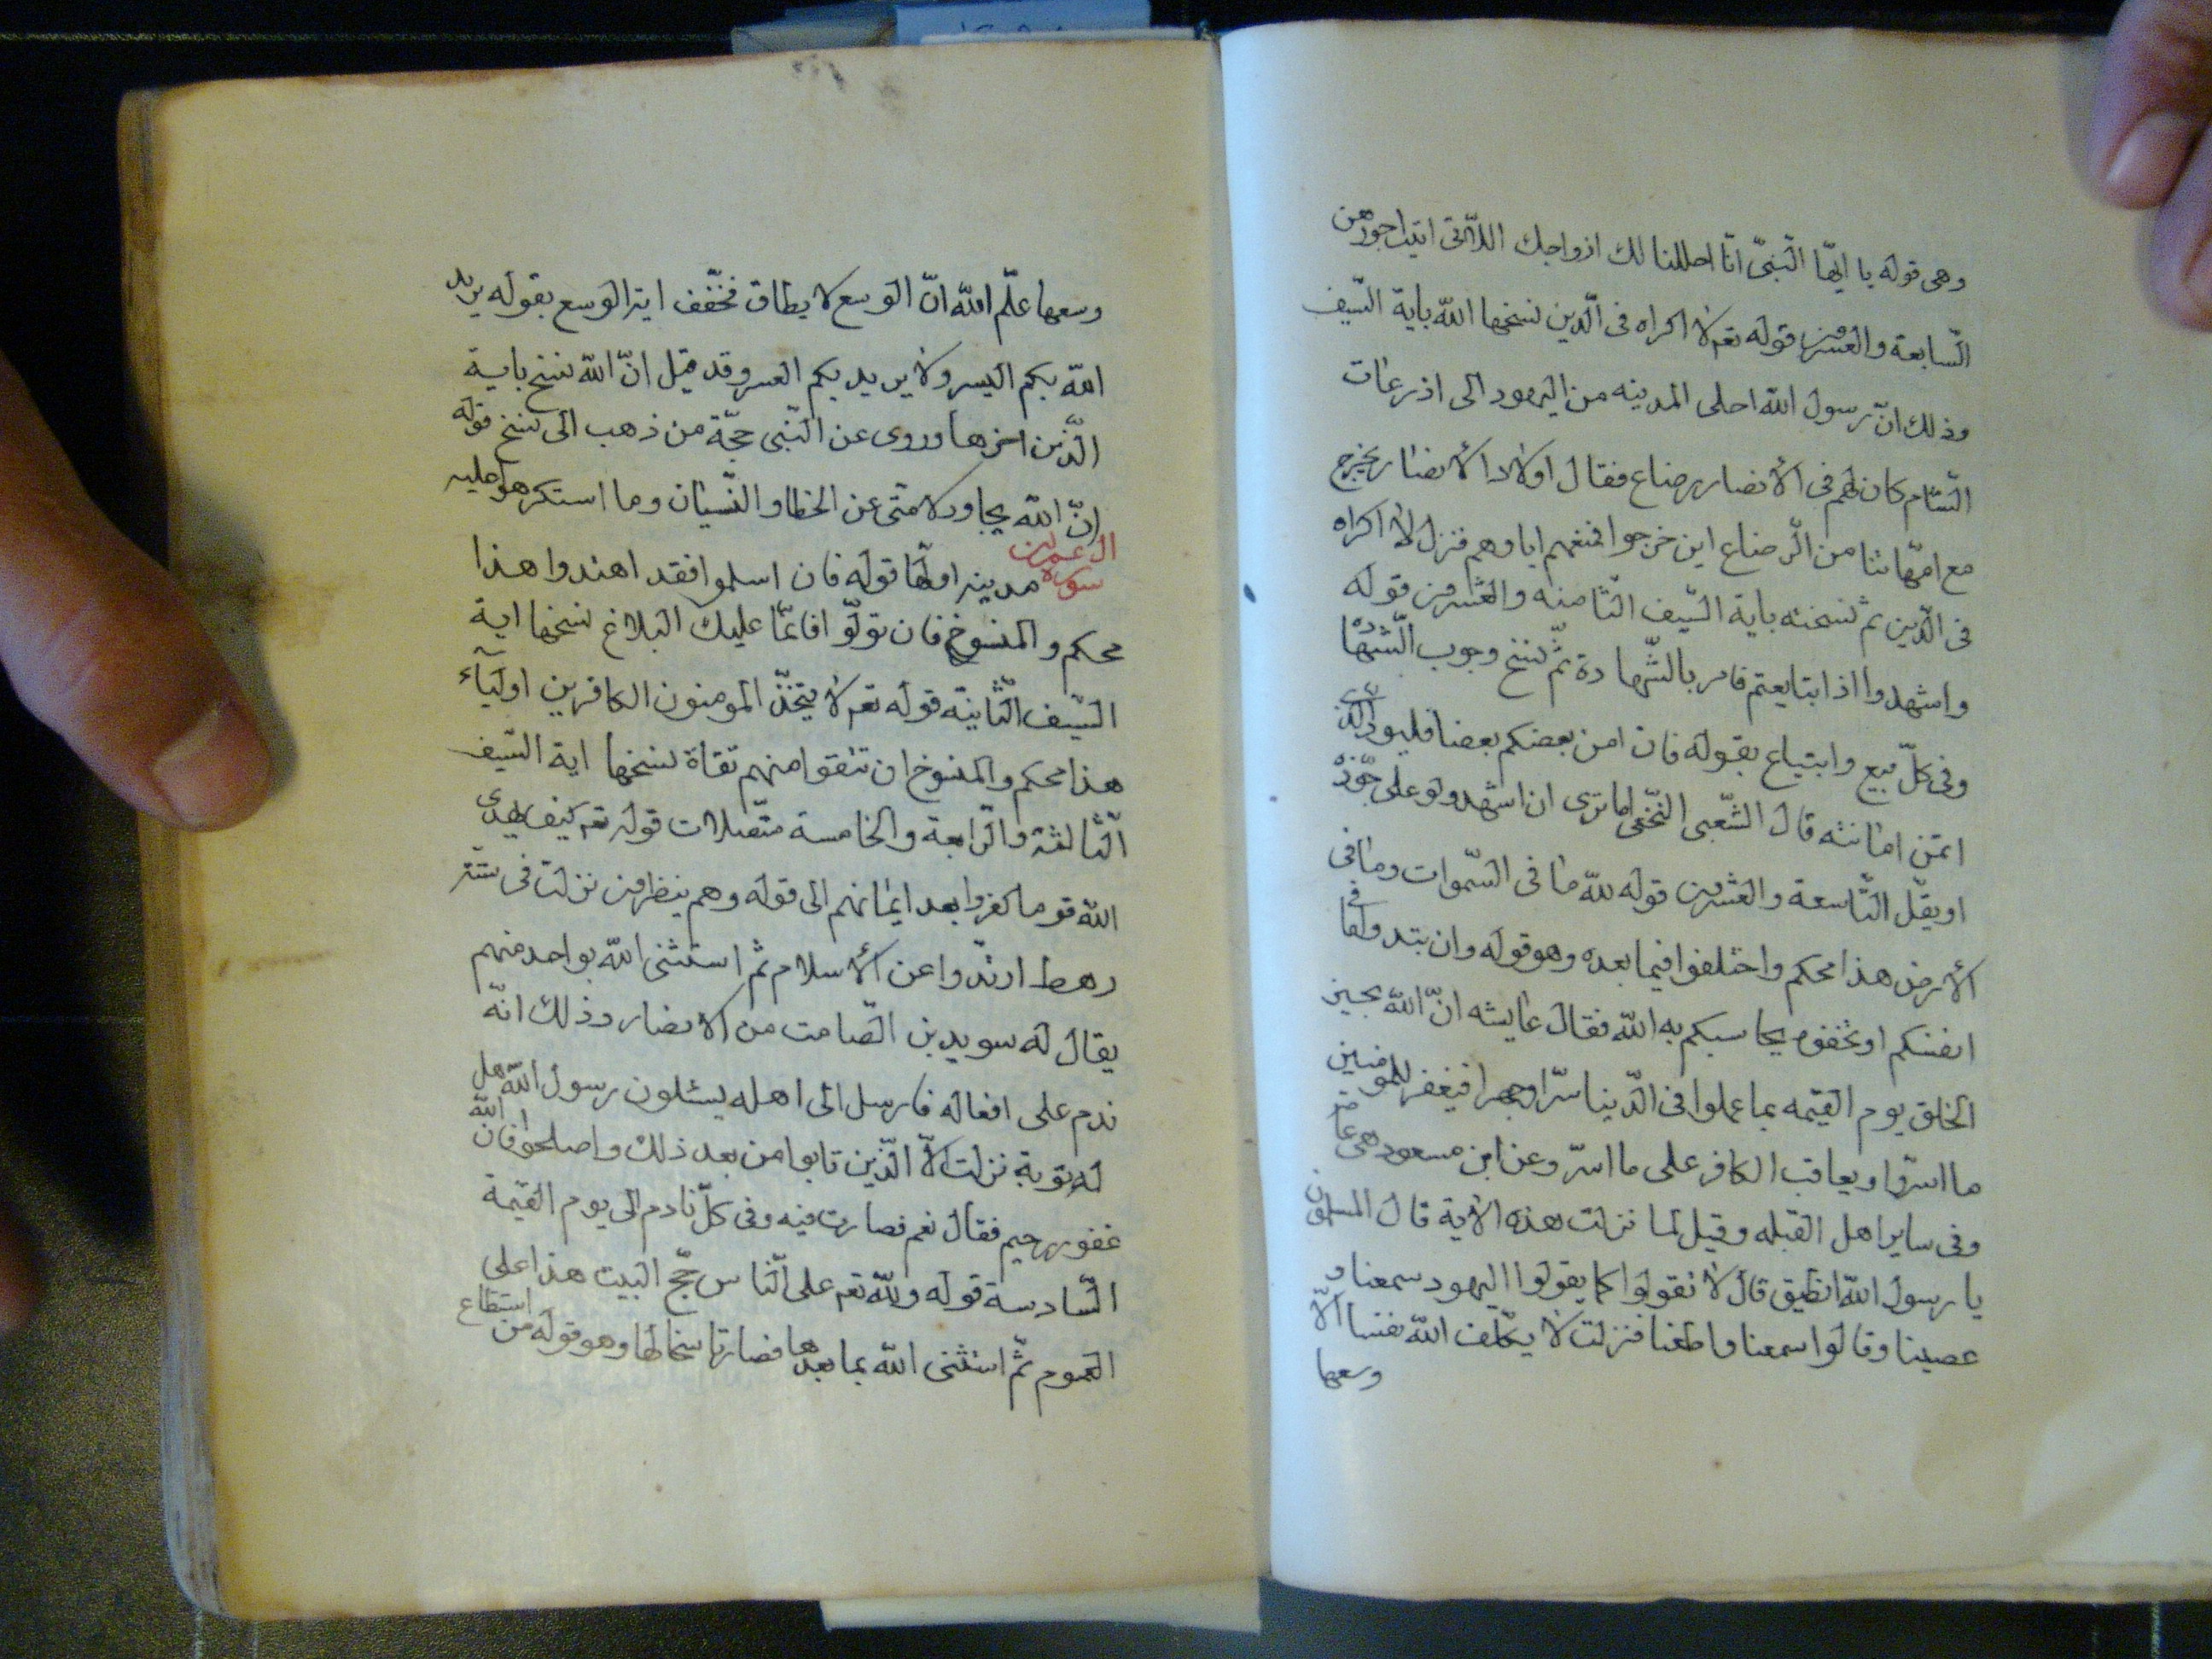 وهى قوله يا ايّها النّبىّ انّا احللنا لك ازواجك اللاّتى اتيت اجورهن
السّابعة والعشرون قوله تعم لا اكراه فى الدّين نسخها اللّه باية السّيف
وذلك انّ رسول اللّه احلى المدينه من اليهود الى اذرعات
الشّام كان لهم فى الأنصار رضاع فقال اولاد الأنصار يخرج
مع امّهاتنا من الرّضاع اين خرجوا فمنعهم اباوهم فنزل لا اكراه
فى الدّين ثم نسخته باية السّيف الثّامنه والعشرون قوله
واشهدوا اذا تبايعتم فامر بالشّهادة ثمّ نسخ وجوب الشّهاده
وفى كلّ بيع وابتياع بقوله فان امن بعضكم بعضا فليود الّذى
ائتمن امانته قال الشّعبى النّخعى اما ترى ان اشهد ولو على
او بقل التّاسعة والعشرون قوله للّه ما فى السّموات وما فى
الأرض هذا محكم واختلفوا فيما بعده وهو قوله وان تبدوا ما فى
انفسكم او تخفوه يحاسبكم به اللّه فقال عايشه انّ اللّه يخبر
الخلق يوم القيمه بما عملوا فى الدّينا سرّا وجهرا فيغفر للمومنين
ما اسرّوا ويعاقب الكافر على ما اسرّ وعن ابن مسعود هى عامّة
وفى ساير اهل القبله وقيل لما نزلت هذه الاية قال المسلمون
يا رسول اللّه انطيق قال لا تقولوا كما يقولوا اليهود سمعنا و
عصينا وقالوا سمعنا واطعنا فنزلت لا يكلّف اللّه نفسا الاّ
وسعها
وسعها علّم اللّه انّ الوسع لا يطاق فخفّف اية الوسع بقوله يريد
اللّه بكم اليسر ولا يريد بكم العسر وقد قيل انّ اللّه نسخ باية
الدّين اخرها وروى عن النّبى حجّة من ذهب الى نسخ قوله
انّ اللّه تجاوز لامتى عن الخطا والنّسيان وما استكرهوا عليه
سورة ال عمران مدينه اولها قوله فان اسلموا فقد اهتدوا هذا
محكم والمنسوخ فان تولّوا فانمّا عليك البلاغ نسخها اية
السّيف الثّانية قوله تعم لا يتّخذ المومنون الكافرين اوليآء
هذا محكم والمنسوخ ان تتقوا منهم تقاة نسخها اية السّيف
الثّالثة والرّابعة والخامسة متّصلات قوله تعم كيف يهدى
اللّه قوما كفروا بعد ايمانهم الى قوله وهم ينظرون نزلت فى ستّة
رهط ارتدّوا عن الأسلام ثمّ استثنى اللّه بواحد منهم
يقال له سويد بن الصّامت من الانصار وذلك انّه
ندم على افعاله فارسل الى اهله يسئلون رسول اللّه هل
له توبة نزلت الاّ الّذين تابوا من بعد ذلك واصلحوا فان اللّه
غفور رحيم فقال نعم فصارت فيه وفى كلّ نادم الى يوم القيمة
السّادسة قوله وللّه تعم على النّاس حجّ البيت هذا على
العموم ثمّ استثنى اللّه بما بعدها فصارت ناسخا لها وهو قوله من استطاع